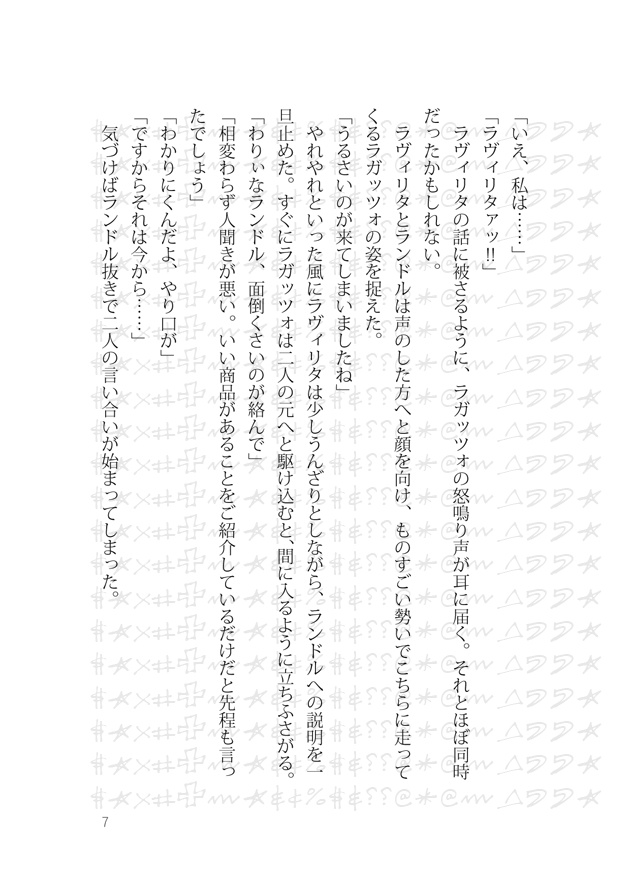 「いえ、私は……」
「ラヴィリタァッ!!」
　ラヴィリタの話に被さるように、ラガッツォの怒鳴り声が耳に届く。それとほぼ同時
だったかもしれない。
　ラヴィリタとランドルは声のした方へと顔を向け、ものすごい勢いでこちらに走って
くるラガッツォの姿を捉えた。
「うるさいのが来てしまいましたね」
　やれやれといった風にラヴィリタは少しうんざりとしながら、ランドルへの説明を一
旦止めた。すぐにラガッツォは二人の元へと駆け込むと、間に入るように立ちふさがる。
「わりぃなランドル、面倒くさいのが絡んで」
「相変わらず人聞きが悪い。いい商品があることをご紹介しているだけだと先程も言っ
たでしょう」
「わかりにくんだよ、やり口が」
「ですからそれは今から……」
　気づけばランドル抜きで二人の言い合いが始まってしまった。
7